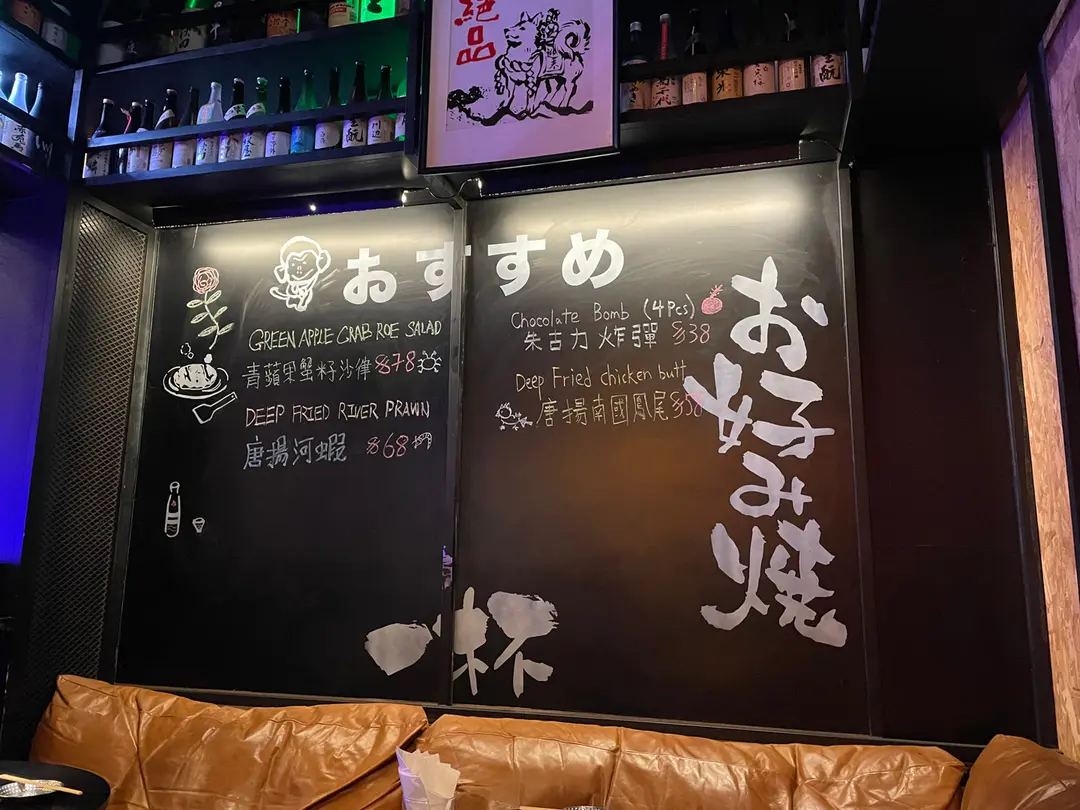 絕品
おすすめ
GREEN APPLE CRAB ROE SALAD
青蘋果蟹籽沙律 $78
DEEP FRIED RIVER PRAWN
唐揚河蝦 $68
Chocolate Bomb (4pcs)
朱古力炸彈 $38
Deep Fried chicken butt
唐揚南國鳳尾 $58
お好み焼
一杯